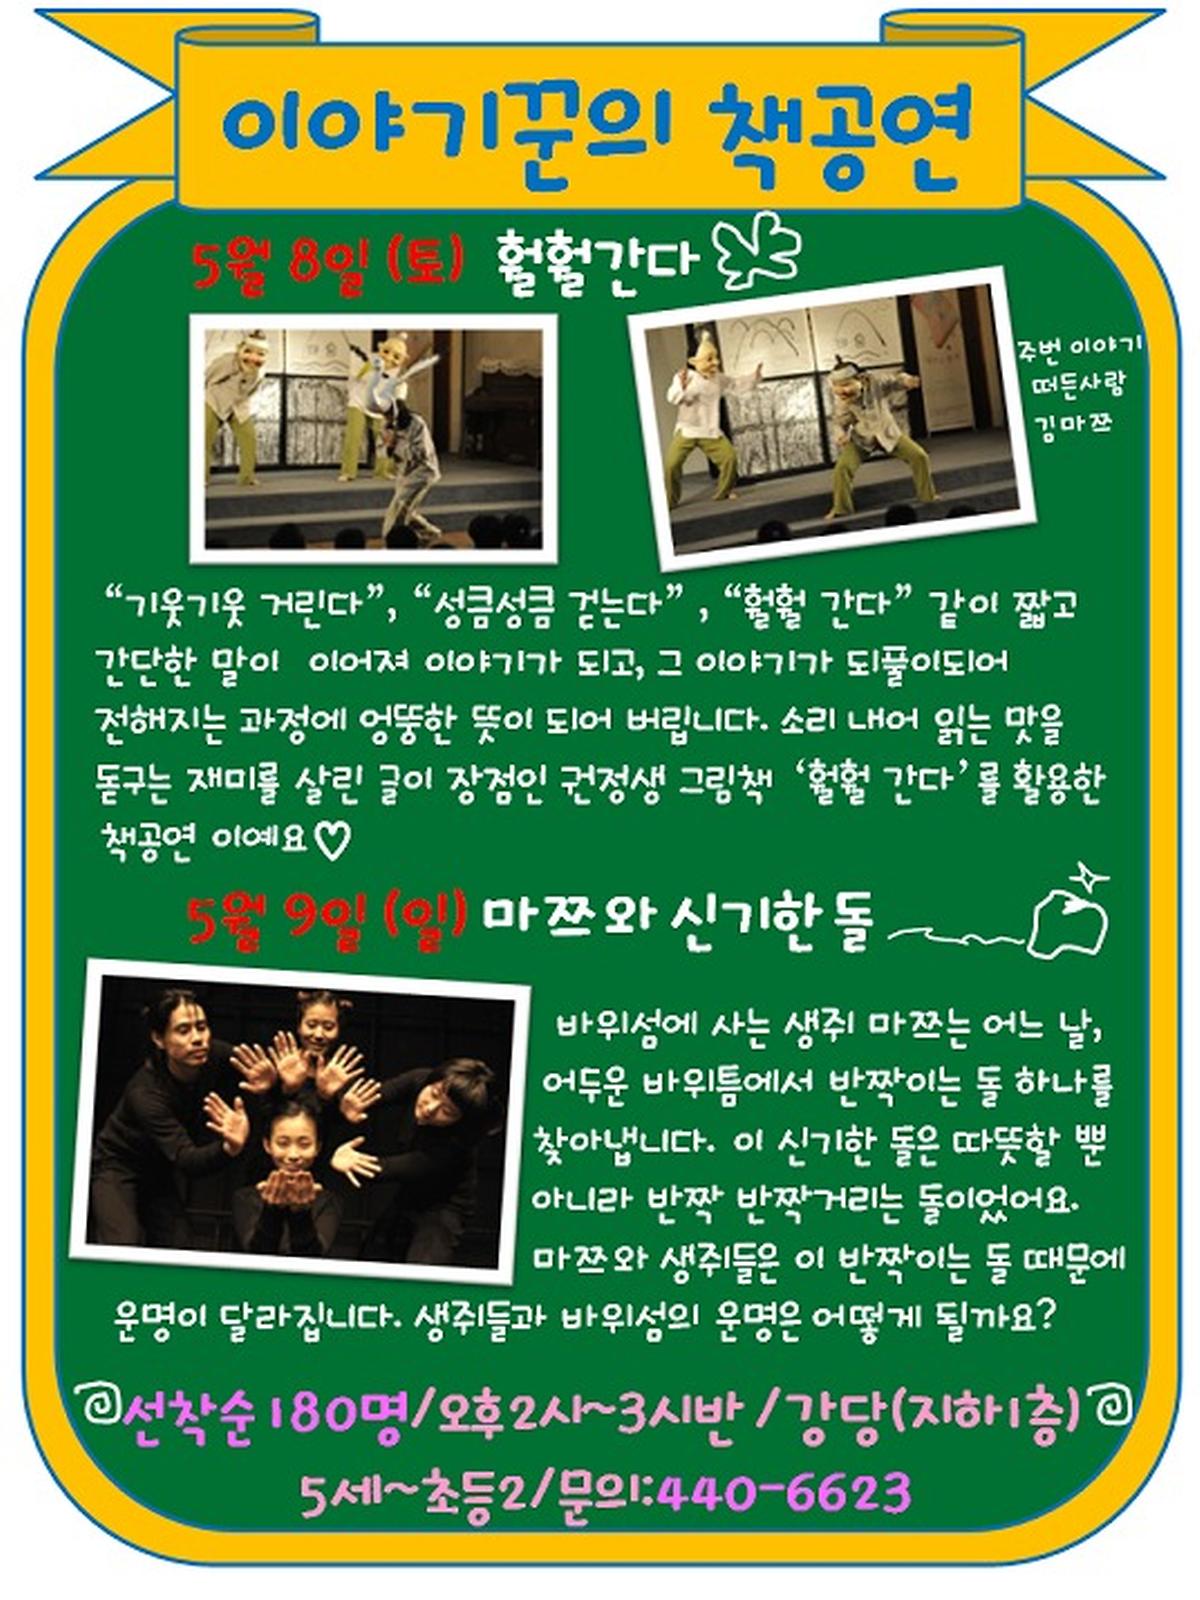 이야기꾼의 책공연
5월 8일 (토) 훨훨간다
주번 이야기
떠든사람
김마쯔
“기웃기웃 거린다”, “성큼성큼 걷는다” , “훨훨 간다” 같이 짧고
간단한 말이 이어져 이야기가 되고, 그 이야기가 되풀이되어
전해지는 과정에 엉뚱한 뜻이 되어 버립니다. 소리 내어 읽는 맛을
돋구는 재미를 살린 글이 장점인 권정생 그림책 ‘훨훨 간다’를 활용한
책공연 이예요♡
5월 9일 (일) 마쯔와 신기한 돌
바위섬에 사는 생쥐 마쯔는 어느 날,
어두운 바위틈에서 반짝이는 돌 하나를
찾아냅니다. 이 신기한 돌은 따뜻할 뿐
아니라 반짝 반짝거리는 돌이었어요.
마쯔와 생쥐들은 이 반짝이는 돌 때문에
운명이 달라집니다. 생쥐들과 바위섬의 운명은 어떻게 될까요?
선착순180명/오후2시~3시반/강당(지하1층)
5세~초등2/문의:440-6623